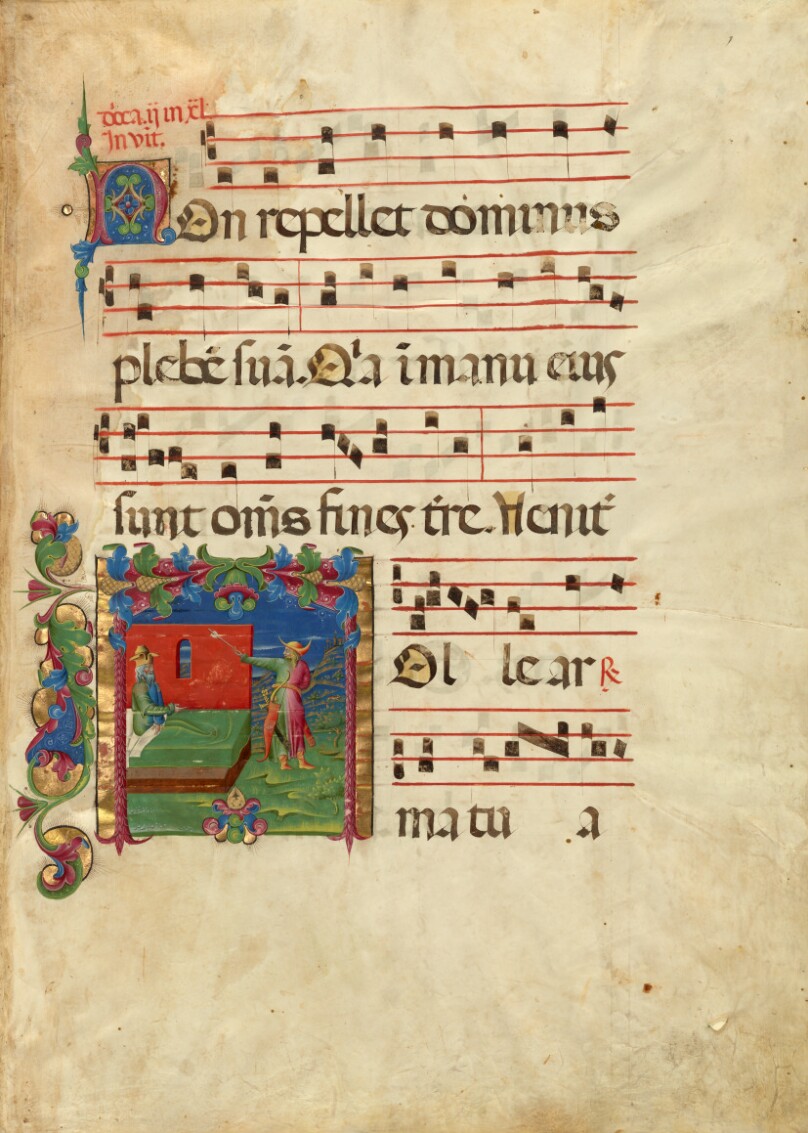 dñca.ij in xl.
Invit.
NOn repellet dominus
plebē suā. Qͥa ī manu eius
sunt om̄s fines tr̄e. Venit̄
TOl le ar ℞
ma tu a